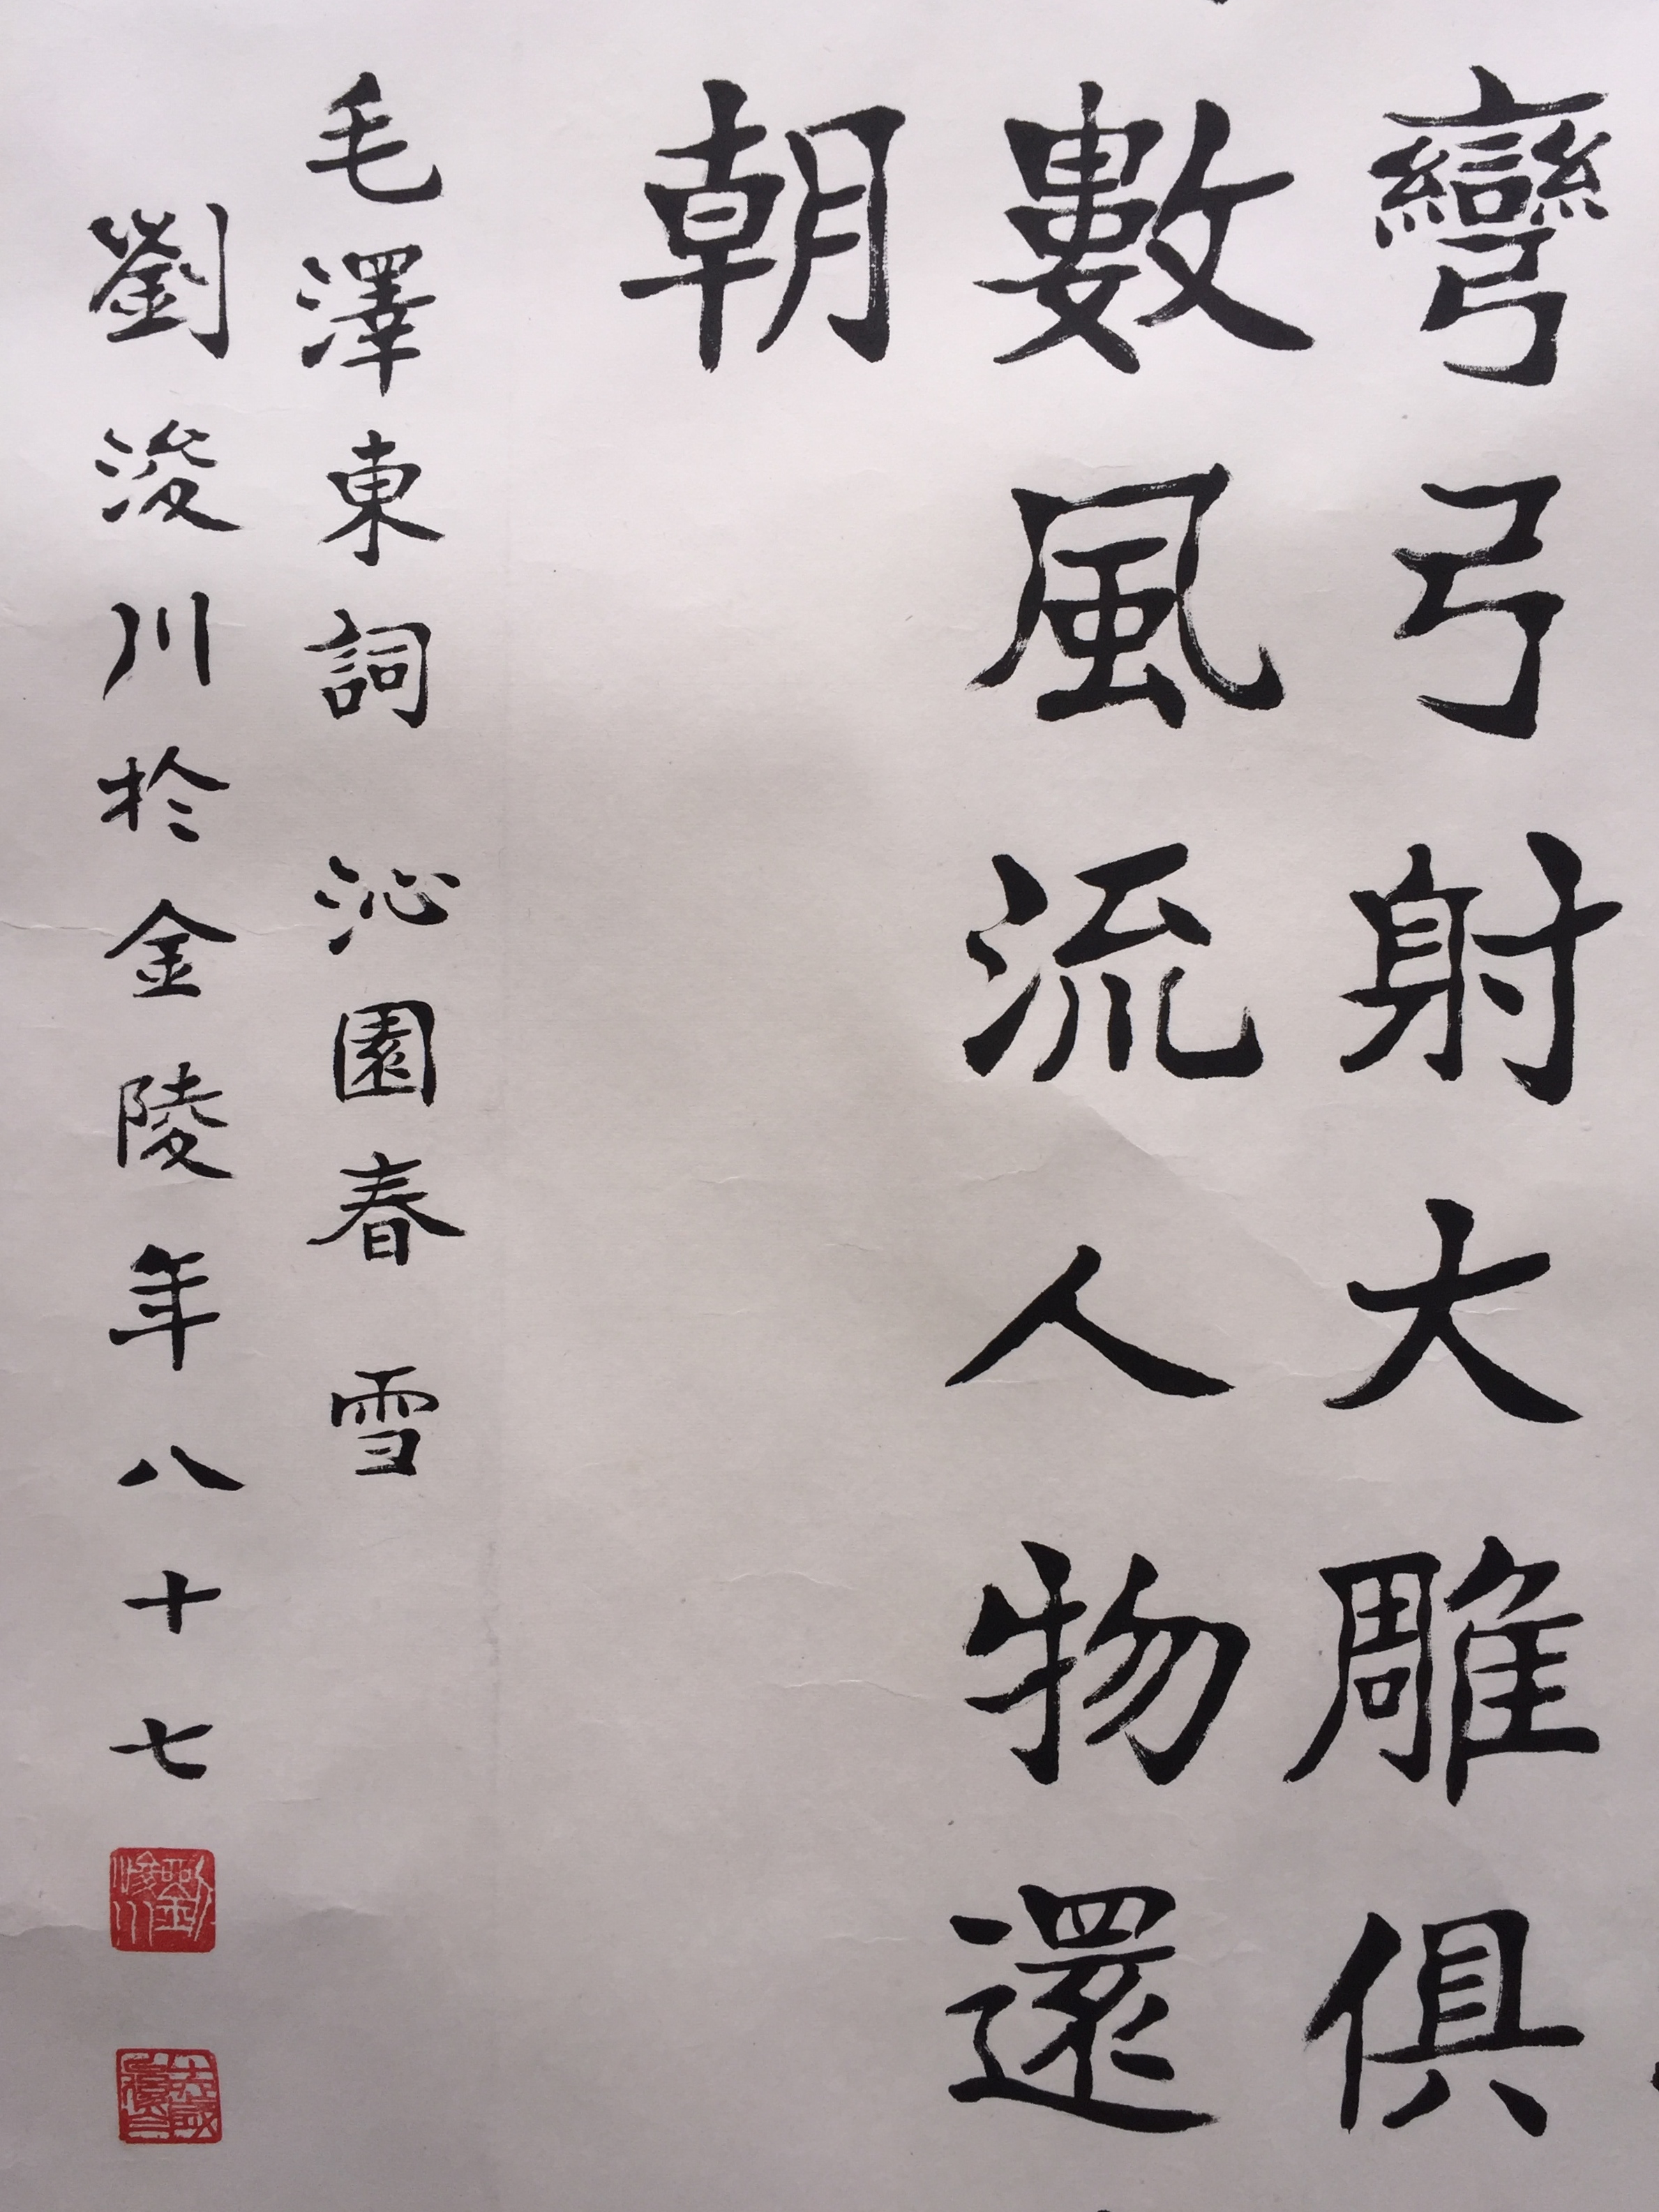 彎弓弓射大雕俱
數風流人物還
朝
毛澤東詞 沁園春 雪
劉浚川於金陵年八十七
劉浚川